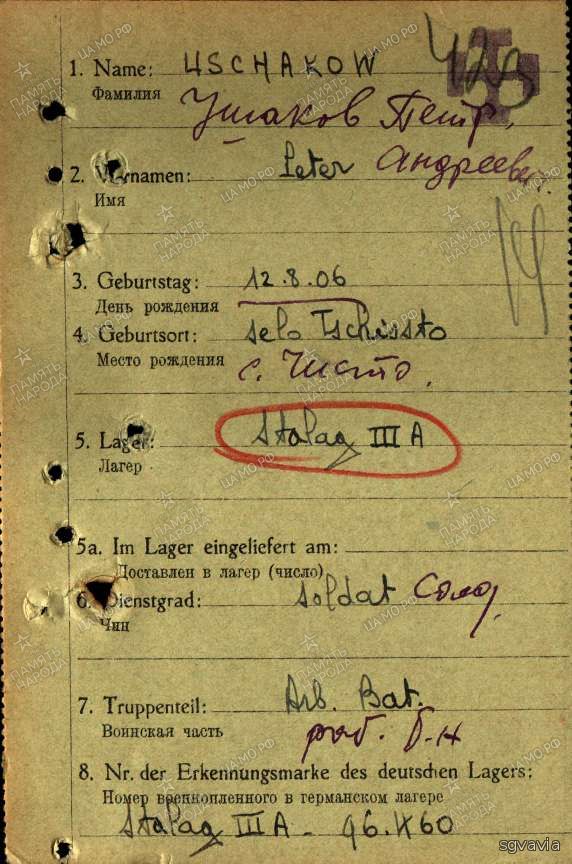 1. Name: USCHAKOW
Фамилия
Ушаков Петр.
2. Vornamen: Peter Андреевич.
Имя
3. Geburtstag: 12.8.06
День рождения
4. Geburtsort: selo Tschissto
Место рождения с. Чисто.
5. Lager: Stalag III A
Лагер
5a. Im Lager eingeliefert am:
Доставлен в лагер (число)
6. Dienstgrad: Soldat Солд.
Чин
7. Truppenteil: Arb. Bat.
Воинская часть раб. б-н
8. Nr. der Erkennungsmarke des deutschen Lagers:
Номер военнопленного в германском лагере
Stalag III A -
ПАМЯТЬ НАРОДА
ЦАМО.РФ
sgvavia